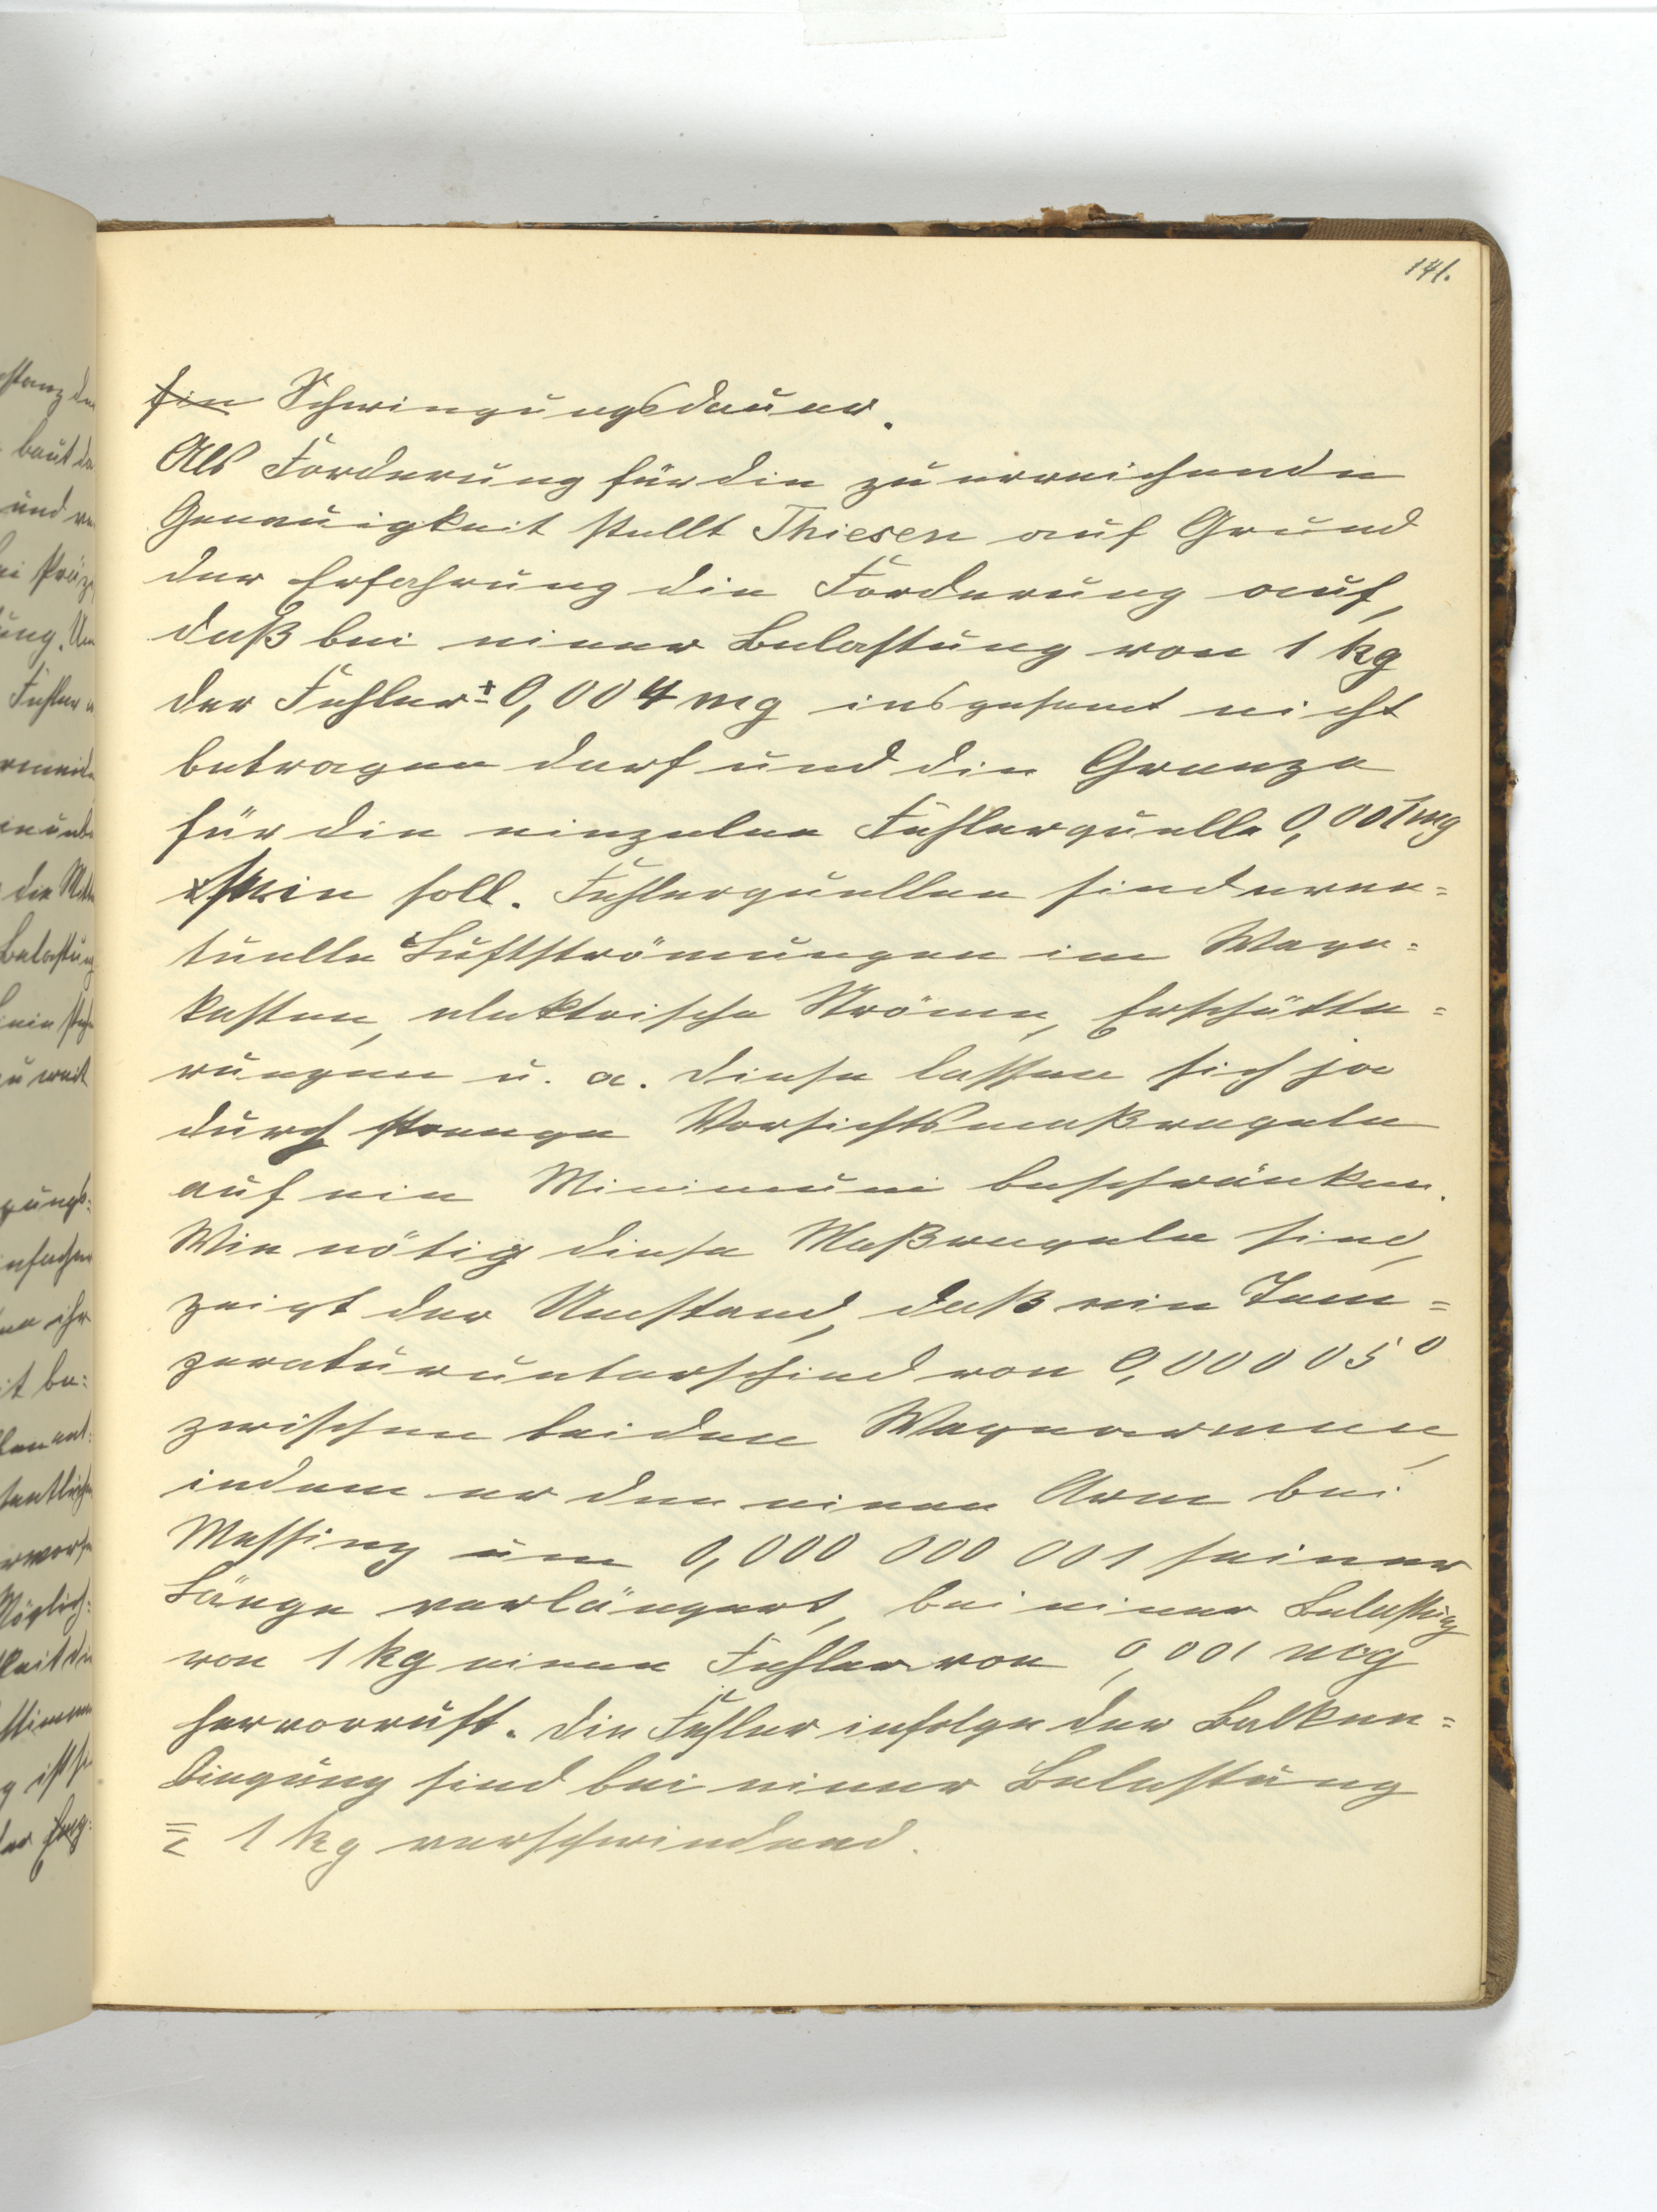 141.
ein Schwingungsdauer.
Als Forderung für die zu erreichende
Genauigkeit stellt Thiesen auf Grund
der Erfahrung die Forderung auf,
daß bei einer Belastung von 1 kg
der Fehler ± 0,004 mg insgesamt nicht
betragen darf und die Grenze
für die einzelne Fehlerquelle 0,001 mg
sein soll. Fehlerquellen sind even=
tuelle Luftströmungen im Wage=
kasten, elektrische Ströme, Erschütte=
rungen u. a. Diese lassen sich ja
durch strenge Vorsichtsmaßregeln
auf ein Minimum beschränken.
Wie nötig diese Maßregeln sind,
zeigt der Umstand, daß ein Tem=
peraturunterschied von 0,00005°
zwischen beiden Wagearmen,
indem er den einen Arm bei
Messing um 0,000 000 001 seiner
Länge verlängert, bei einer Belastung
von 1 kg einen Fehler von 0,001 mg
hervorruft. Die Fehler infolge der Balken=
biegung sind bei einer Belastung
1 kg verschwindend.